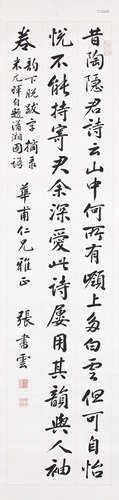 昔陶隱君詩云山中何所有嶺上多白雲但可自怡
悅不能持寄君余深愛此詩屢用其韻與人袖
卷
韻下脫數字 摘录
米元暉自題瀟湘圖語
華甫仁兄雅正
張書雲